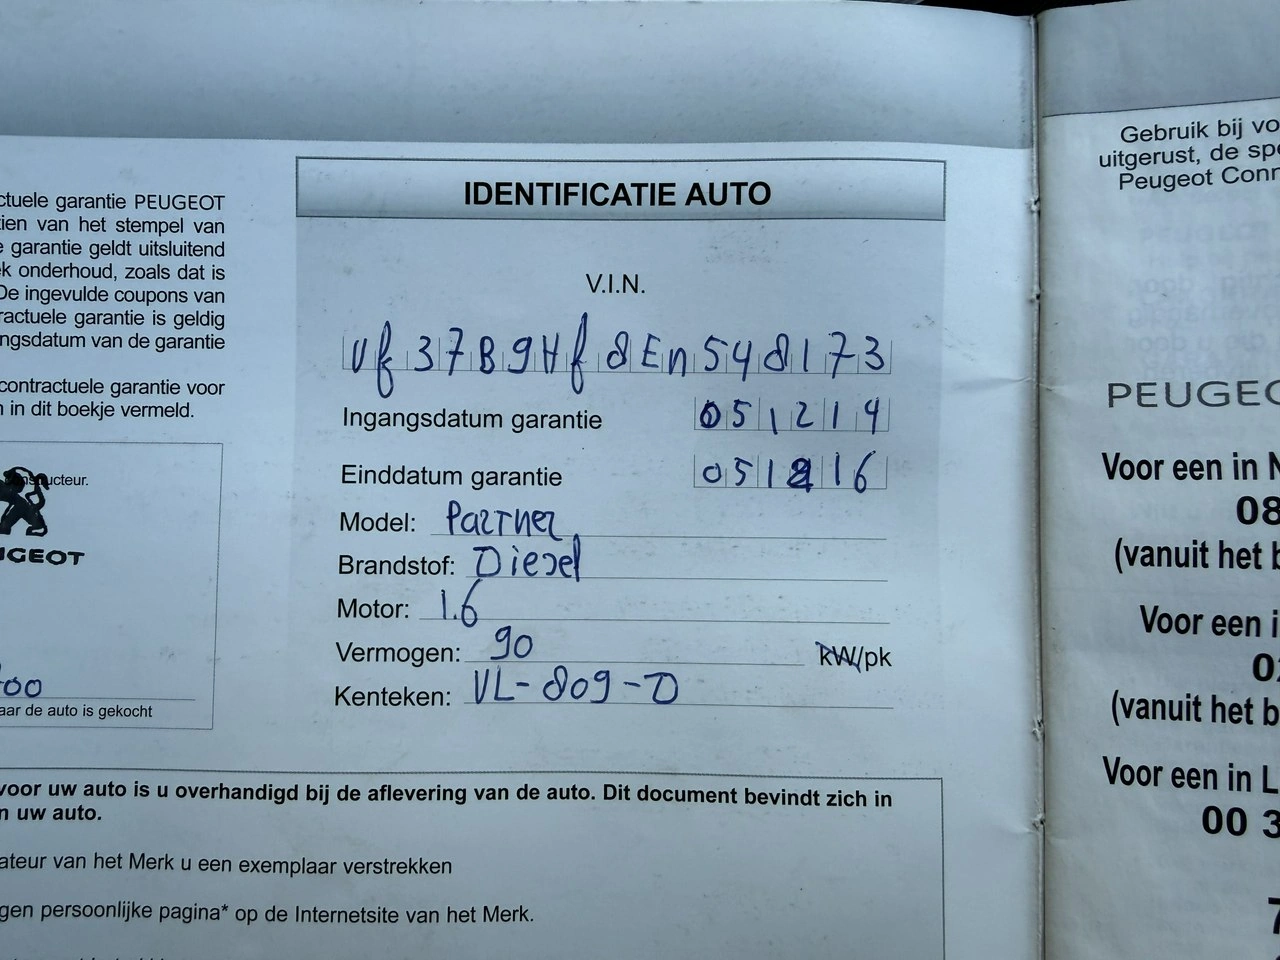 ctuele garantie PEUGEOT
ien van het stempel van
e garantie geldt uitsluitend
k onderhoud, zoals dat is
De ingevulde coupons van
ractuele garantie is geldig
ngsdatum van de garantie
contractuele garantie voor
n in dit boekje vermeld.
ructeur.
GEOT
00
aar de auto is gekocht
IDENTIFICATIE AUTO
V.I.N.
Vf37B9Hf8En548173
Ingangsdatum garantie 051214
Einddatum garantie 051216
Model: Partner
Brandstof: Diesel
Motor: 1.6
Vermogen: 90 kW/pk
Kenteken: VL-809-D
voor uw auto is u overhandigd bij de aflevering van de auto. Dit document bevindt zich in
n uw auto.
ateur van het Merk u een exemplaar verstrekken
gen persoonlijke pagina* op de Internetsite van het Merk.
Gebruik bij vo
uitgerust, de spe
Peugeot Conn
PEUGEO
Voor een in N
08
(vanuit het b
Voor een i
02
(vanuit het b
Voor een in L
00 3
7